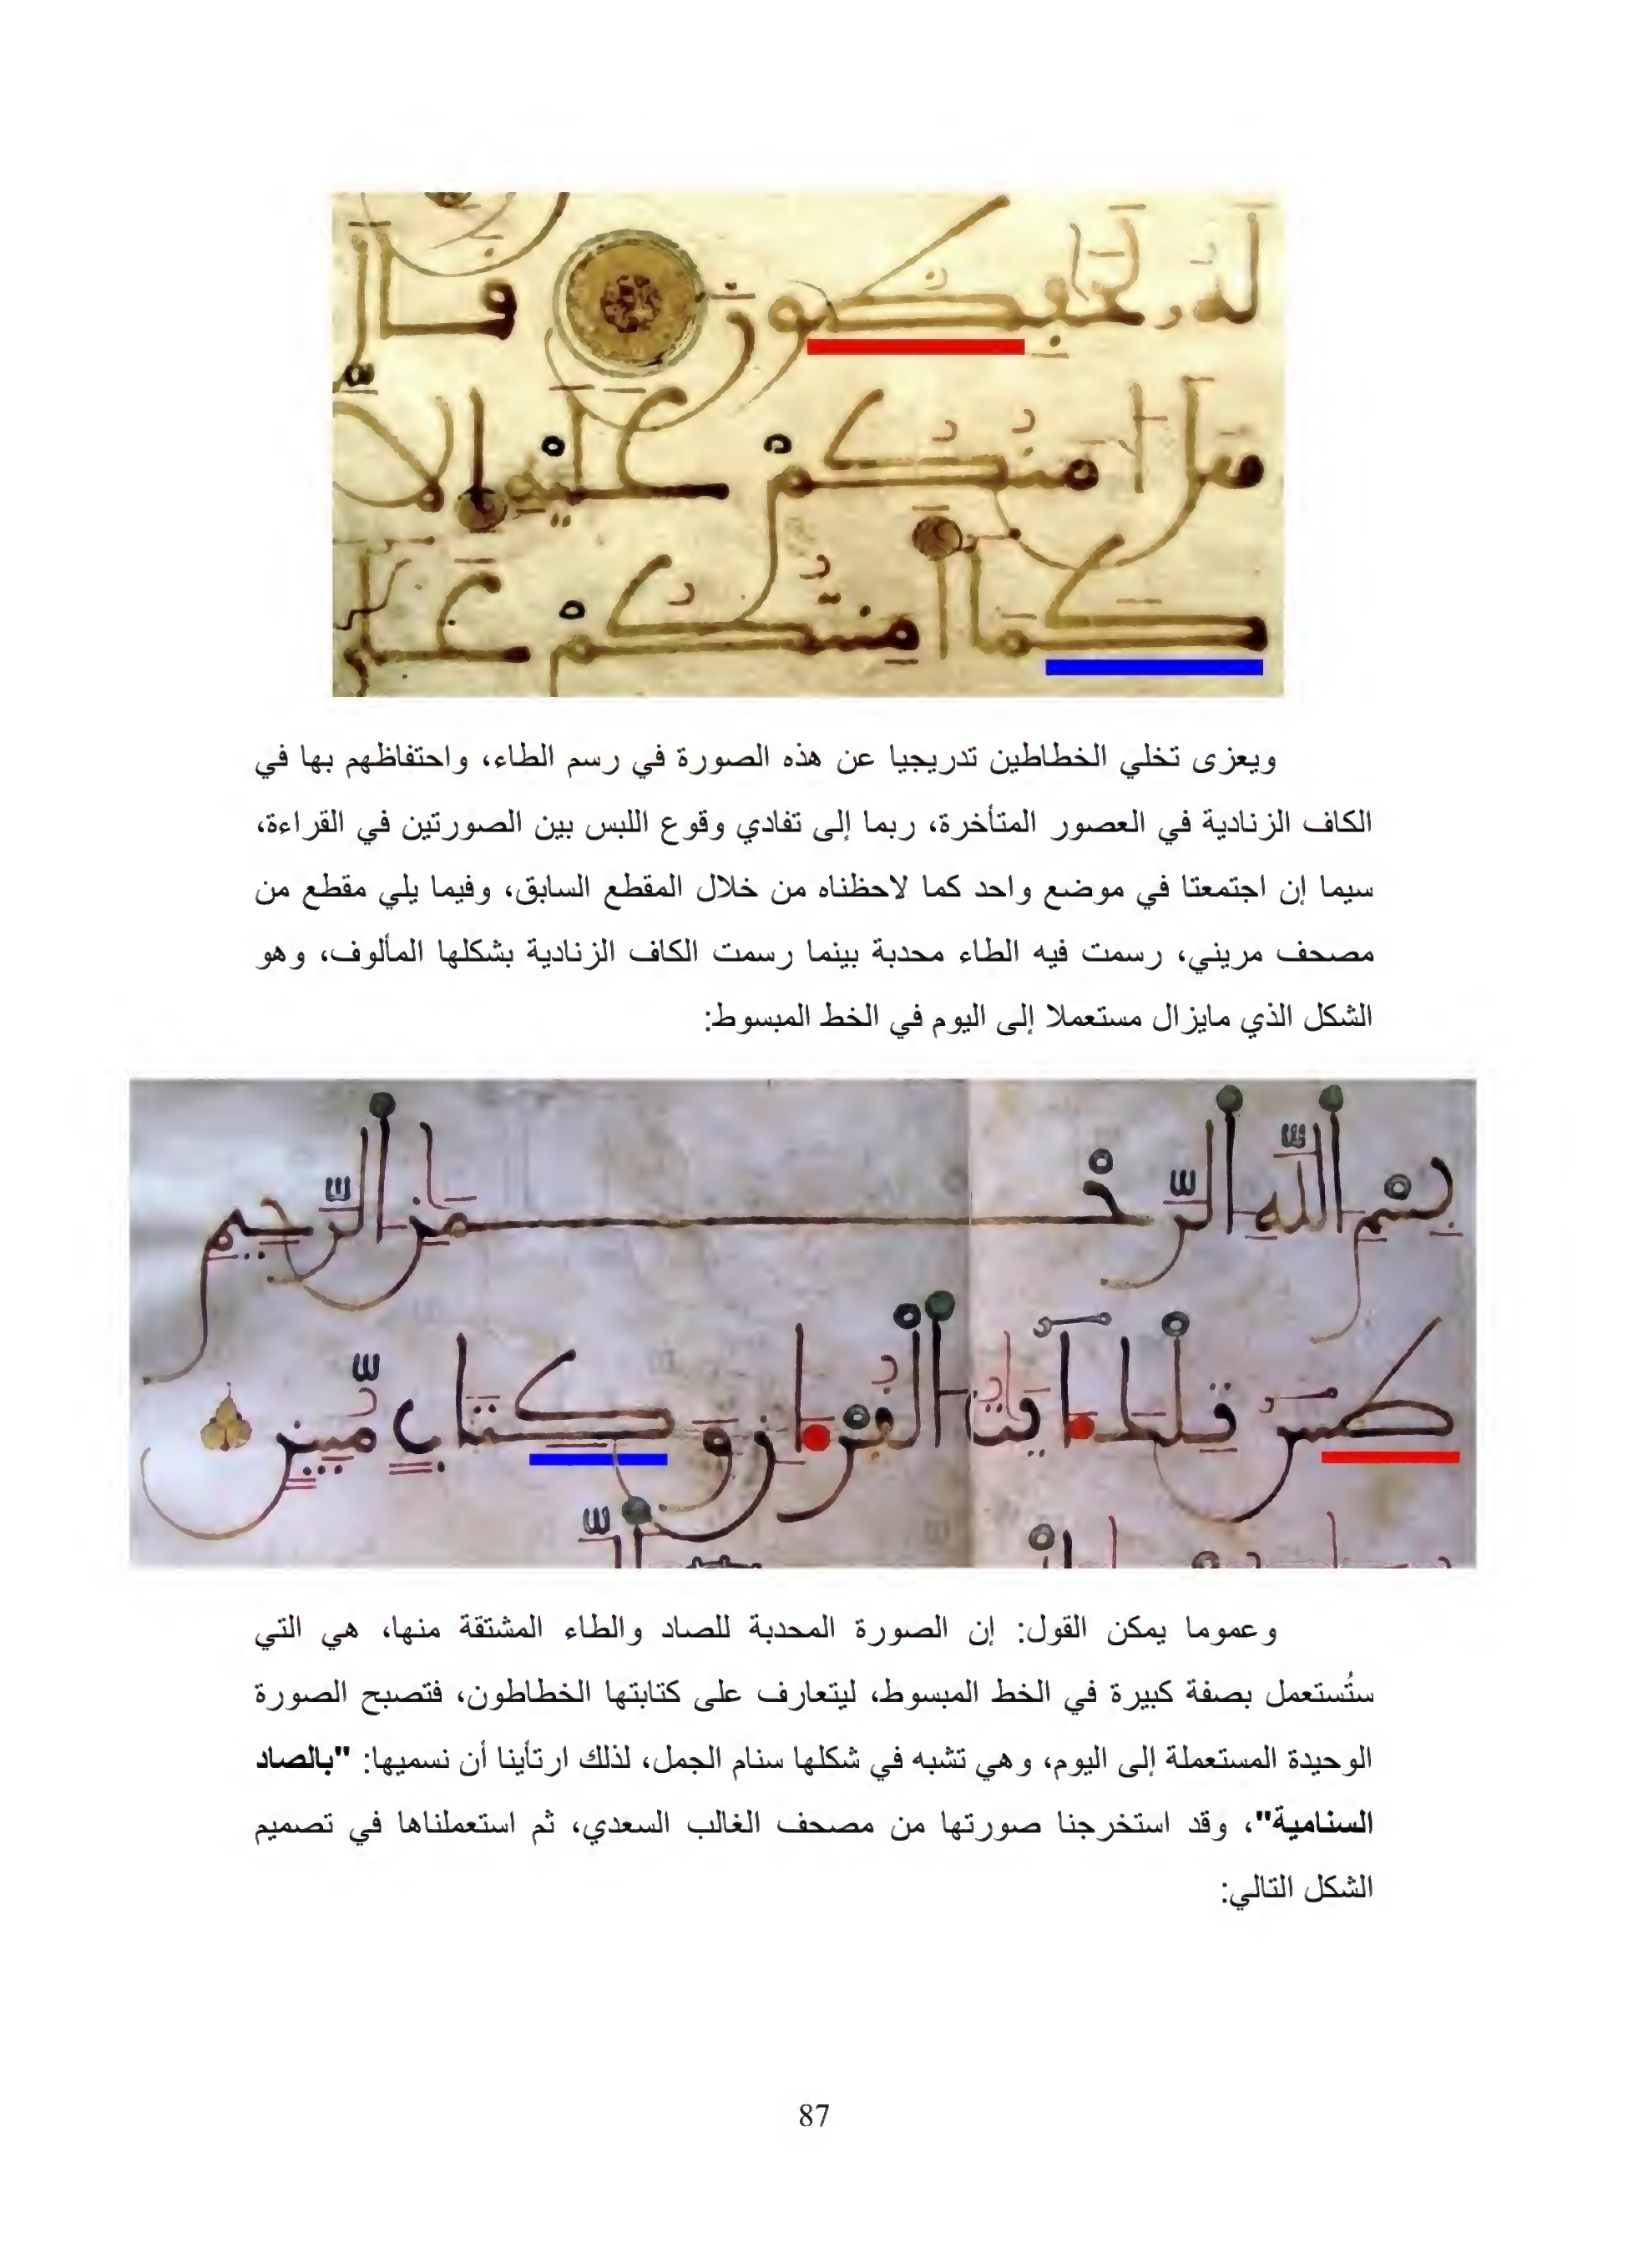 لَهُۥ لَحَٰفِظُونَ قَالَ
هَلَ اٰمَنُكُمْ عَلَيْهِ إِلَّا
كَمَا أَمِنتُكُمْ عَلَىٰ
ويعزى تخلي الخطاطين تدريجيا عن هذه الصورة في رسم الطاء، واحتفاظهم بها في
الكاف الزنادية في العصور المتأخرة، ربما إلى تفادي وقوع اللبس بين الصورتين في القراءة،
سيما إن اجتمعتا في موضع واحد كما لاحظناه من خلال المقطع السابق، وفيما يلي مقطع من
مصحف مريني، رسمت فيه الطاء محدبة بينما رسمت الكاف الزنادية بشكلها المألوف، وهو
الشكل الذي مايزال مستعملا إلى اليوم في الخط المبسوط:
بِسْمِ اللَّهِ الرَّحْمَٰنِ الرَّحِيمِ
طَسَ تِلْكَ ءَايَٰتُ الْقُرْءَانِ وَكِتَابٍ مُّبِينٍ
وعموما يمكن القول: إن الصورة المحدبة للصاد والطاء المشتقة منها، هي التي
ستُستعمل بصفة كبيرة في الخط المبسوط، ليتعارف على كتابتها الخطاطون، فتصبح الصورة
الوحيدة المستعملة إلى اليوم، وهي تشبه في شكلها سنام الجمل، لذلك ارتأينا أن نسميها: "بالصاد
السنامية"، وقد استخرجنا صورتها من مصحف الغالب السعدي، ثم استعملناها في تصميم
الشكل التالي:
87